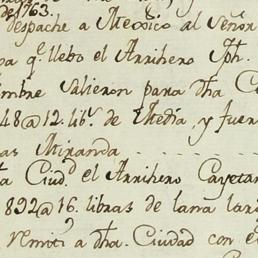 de 1763.
despache a Mexico al Señor
pa q.e llebo el Arrihero Jph.
mbre Salieron para dha C
48@12. lib.s de Media, y fuer
as Miranda
a Ciud.d el Arrihero Cayetan
892@16. libras de lana lan
remiti a dha. Ciudad con e